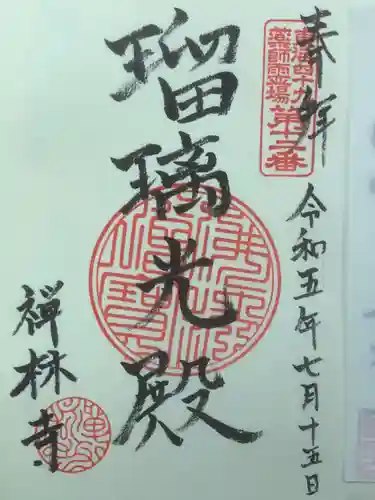 奉拝
東海四十九
薬師霊場
第十二番
令和五年七月十五日
瑠璃光殿
禅林寺